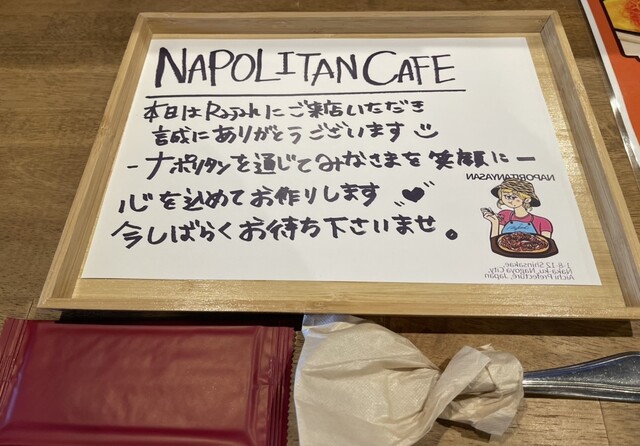 NAPOLITAN CAFE
本日はRojiuraにご来店いただき
誠にありがとうございます
-ナポリタンを通じてみなさまを笑顔に-
心を込めてお作りします
今しばらくお待ち下さいませ。
NAPORITANYASAN
1-8-12 Shinsakae
Naka-ku, Nagoya City,
Aichi Prefecture, Japan